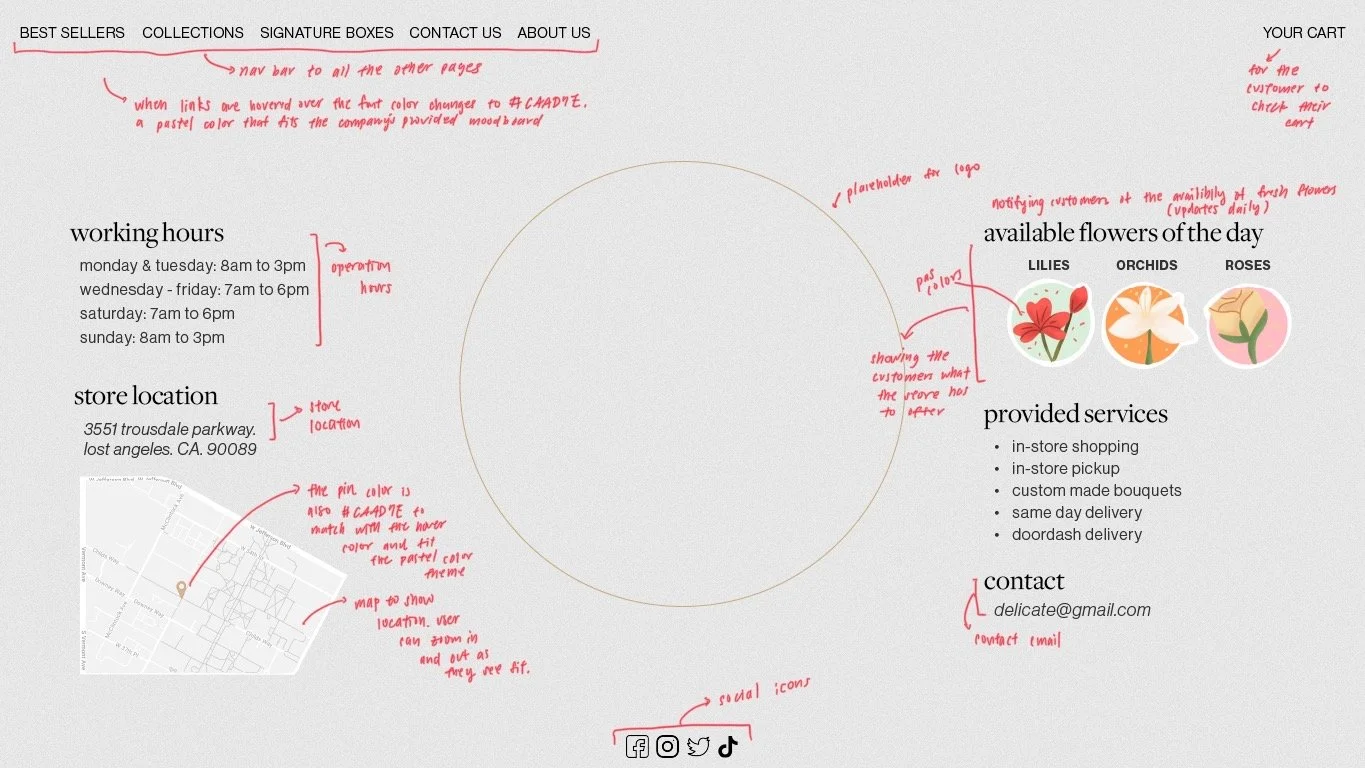 BEST SELLERS COLLECTIONS SIGNATURE BOXES CONTACT US ABOUT US YOUR CART
nav bar to all the other pages
when links are hovered over the font color changes to #CAAD7E.
a pastel color that fits the company's provided moodboard
for the
customer to
check their
cart
placeholder for logo
working hours
monday & tuesday: 8am to 3pm
wednesday - friday: 7am to 6pm
saturday: 7am to 6pm
sunday: 8am to 3pm
operation
hours
store location
3551 trousdale parkway.
lost angeles. CA. 90089
store
location
W Jefferson Blvd
W Jefferson Blvd
McClintock Ave
W Jefferson Blvd
Vermont Ave
Downey Way
Downey Way
McClintock Ave
Childs Way
S Vermont Ave
W 37th Pl
the pin color is
also #CAAD7E to
match with the hover
color and fit
the pastel color
theme
map to show
location. user
can zoom in
and out as
they see fit.
notifying customers of the availiblly of fresh flowers
(updates daily)
available flowers of the day
LILIES ORCHIDS ROSES
pas
colors
showing the
customers what
the store has
to offer
provided services
• in-store shopping
• in-store pickup
• custom made bouquets
• same day delivery
• doordash delivery
contact
delicate@gmail.com
contact email
social icons